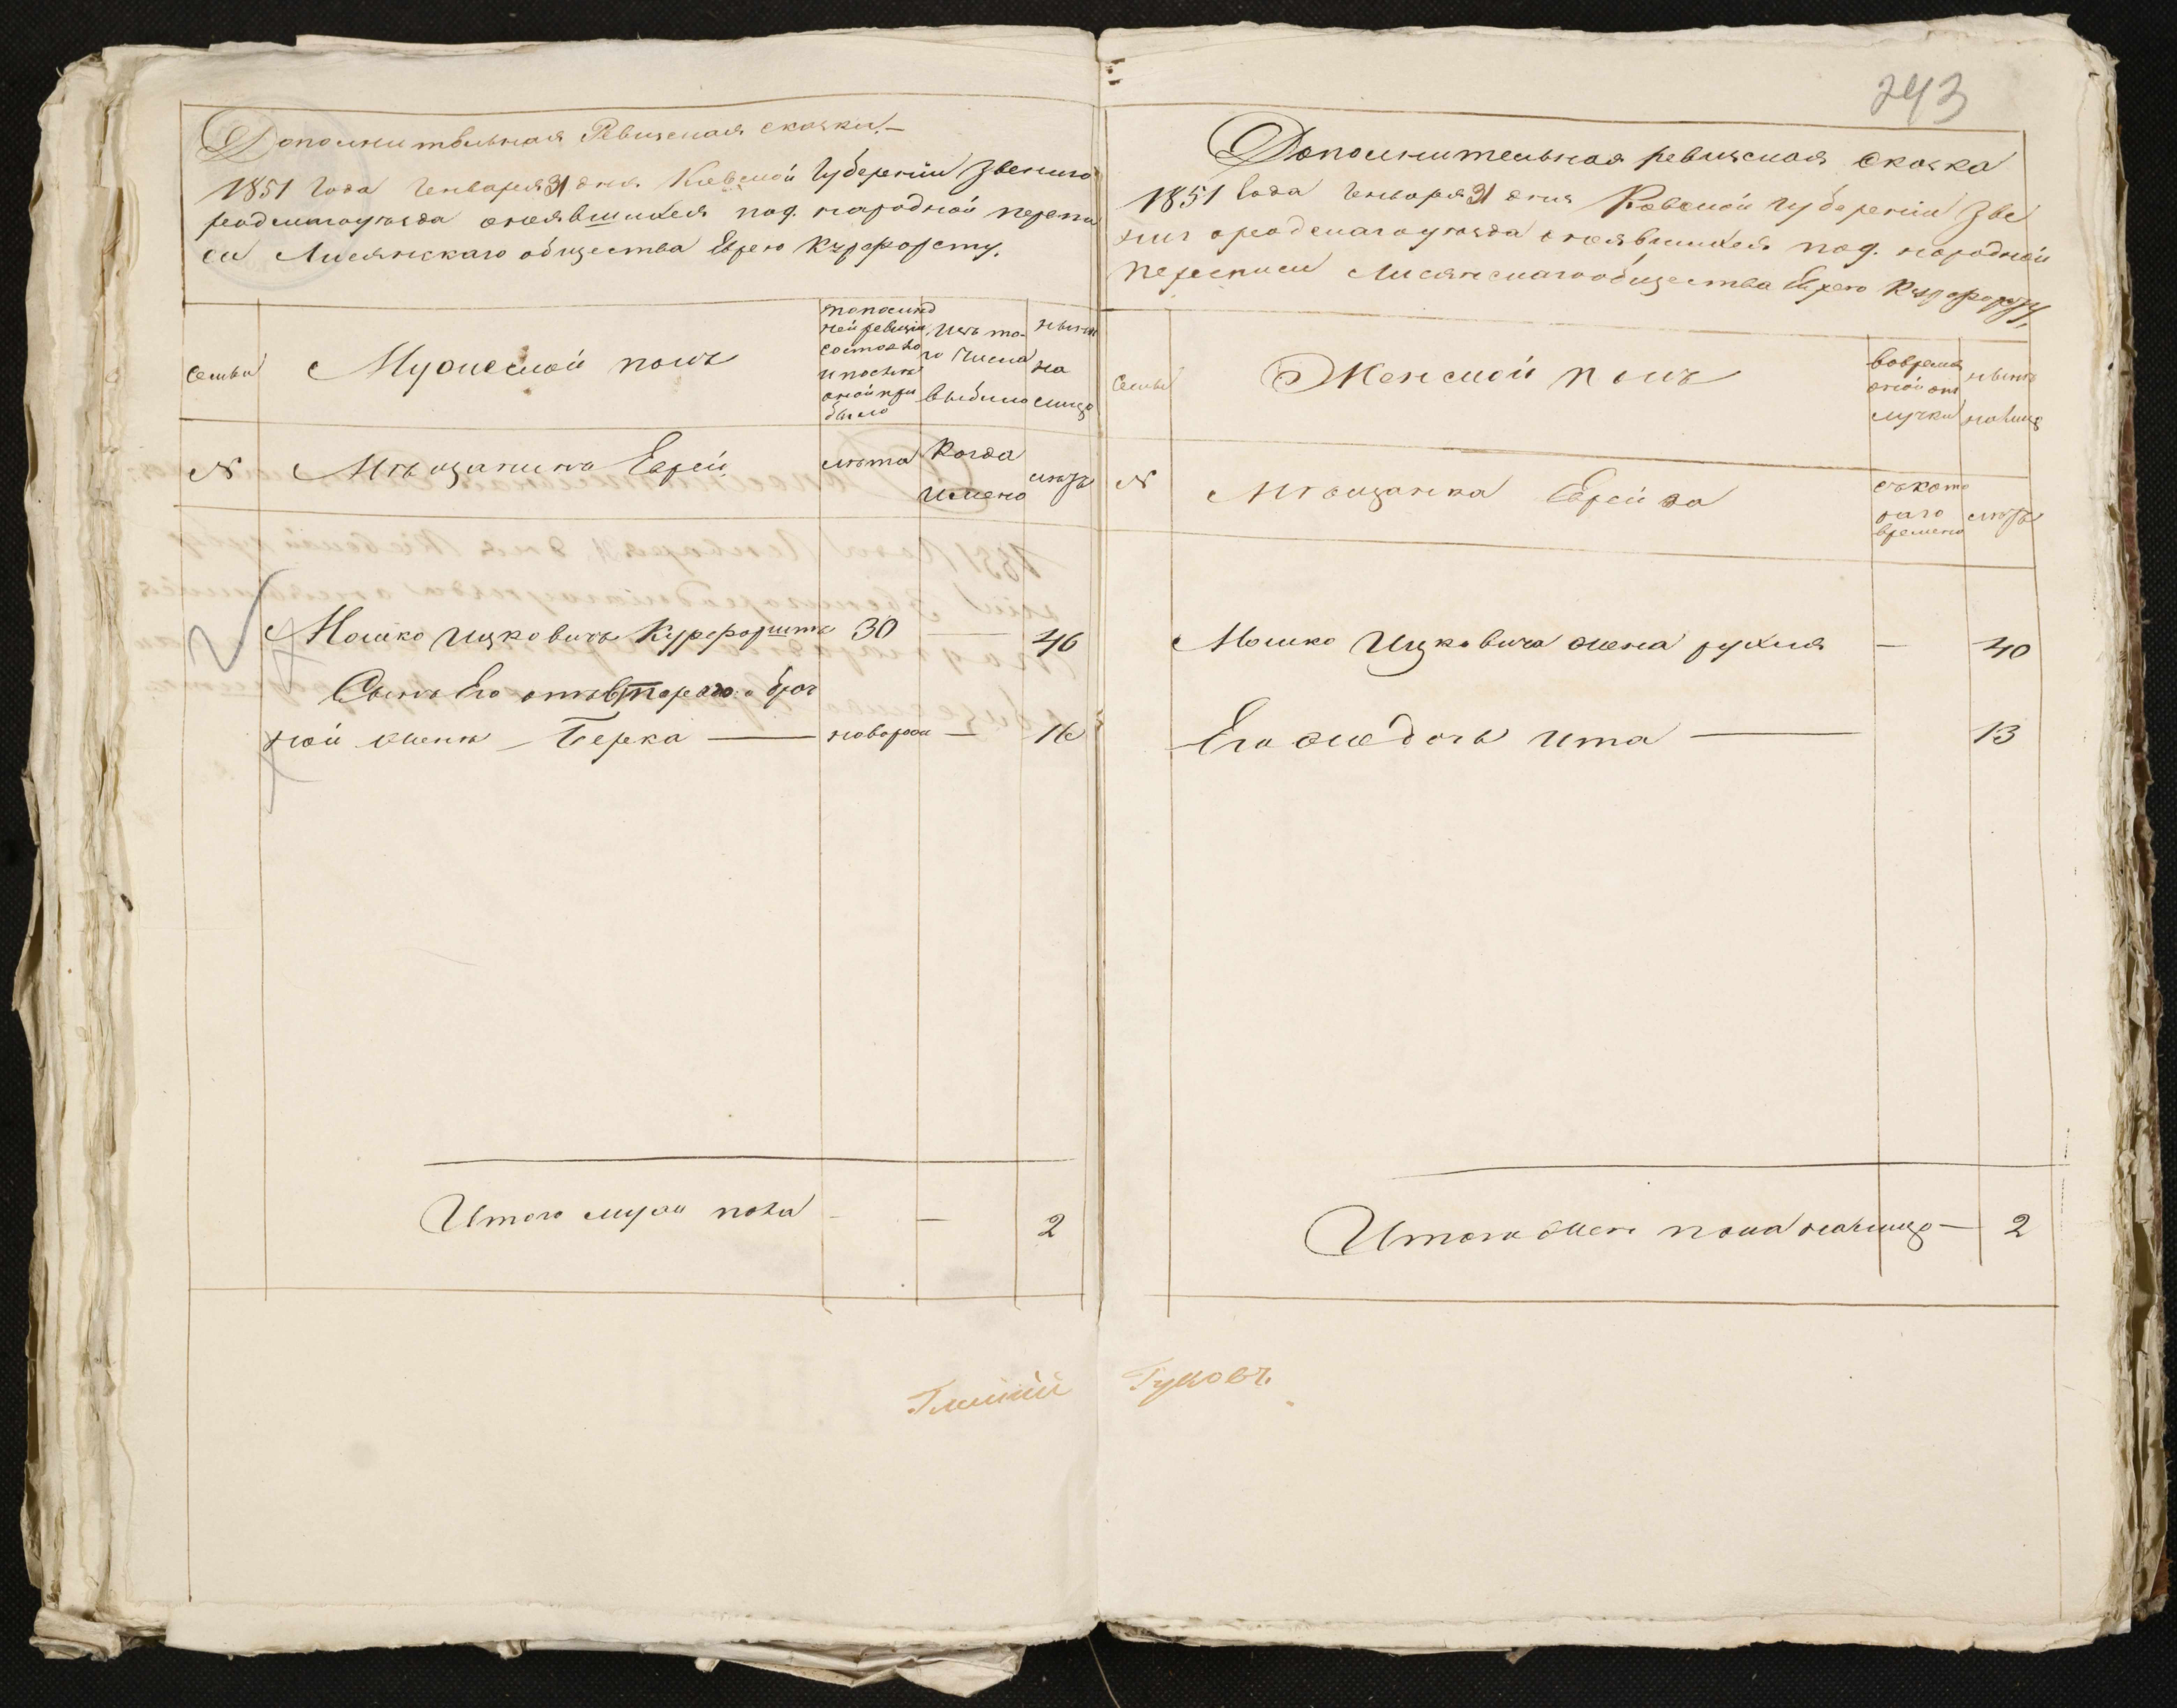 Дополнительная Ревизская сказка.
1851 Года Генваря 31 дня Киевской Губернии Звениго
родскагоуезда оноявшихся под. народной перепи
си Лисянскаго общества Еврею Курфорсту.
Семьи
Мужеской полъ
попослед
ней ревизіи
состояло
и после
оной при
было
Изъ то
го числа
выбыло
ныне
на
лицо
№
Мещанинъ Еврей
лета
Когда
имено
летъ
Мошко Ицковичъ Курфорштъ 30 — 46
Сынъ Его отъвторого брач
ной жены Берка — новорож — 16
Итого муж пола — — 2
243
Дополнительная ревизская сказка
1851 Года Генворя 31 дня Киевской Губерніи Зве
нигородскагоуезда оноявшихся под. народной
переписи Лисянскагообщества Еврею
Семьи
Женской полъ
вовремя
оной от
лучки
ныне
налицо
№
Мещанка Еврейка
съкото
раго
времени
летъ
Мошко Ицковича жена рухля — 40
Его же дочь Ита — 13
Итого жен пола налицо — 2